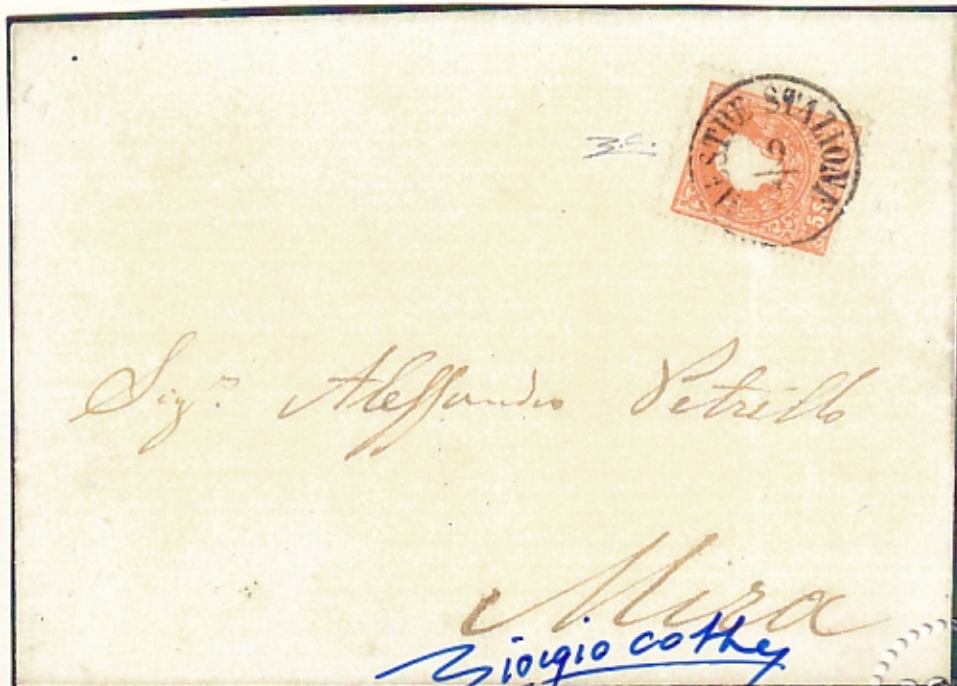 MESTRE STAZIONE
9
5 S
Sigr. Alessandro Petrillo
Mira
Giorgio Colla